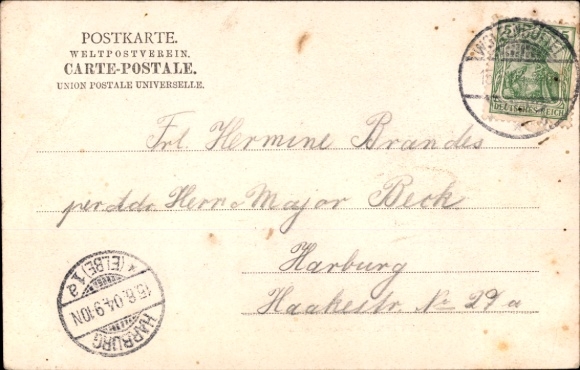 POSTKARTE.
WELTPOSTVEREIN.
CARTE-POSTALE.
UNION POSTALE UNIVERSELLE.
5
DEUTSCHES REICH
Frl. Hermine Brandes
per Adr. Herrn Major Beck
Harburg
Haakestr. No 29 a
HARBURG
15.8.04.9-10N
*(ELBE)1a